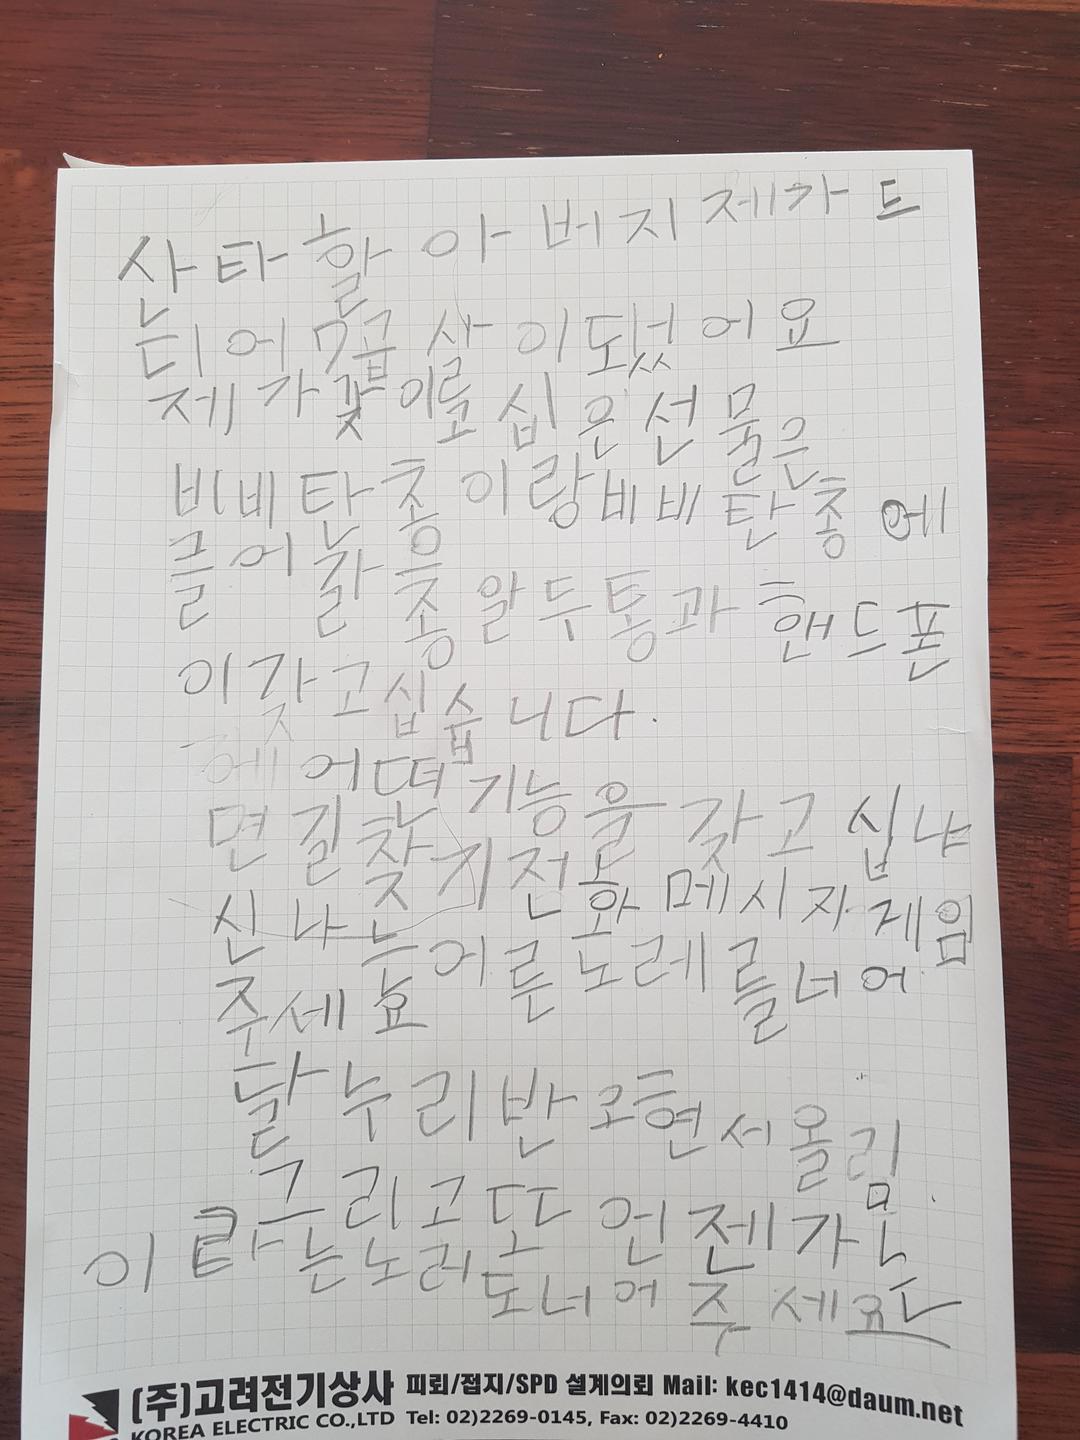 산타할아버지제가드
디어7곱살이되었어요
제가꽃이로십은선물은
비비탄총이랑비비탄총에
들어갈총알두통과핸드폰
이갖고십습니다.
어떠기능을갖고십냐
면길찾기전화메시지게임
신나는어른노레를너어
주세요
달누리반 현서올림
그리고또언젠가는
이타는노러도너어주세요
(주)고려전기상사 피뢰/접지/SPD 설계의뢰 Mail: kec1414@daum.net
KOREA ELECTRIC CO.,LTD Tel: 02)2269-0145, Fax: 02)2269-4410